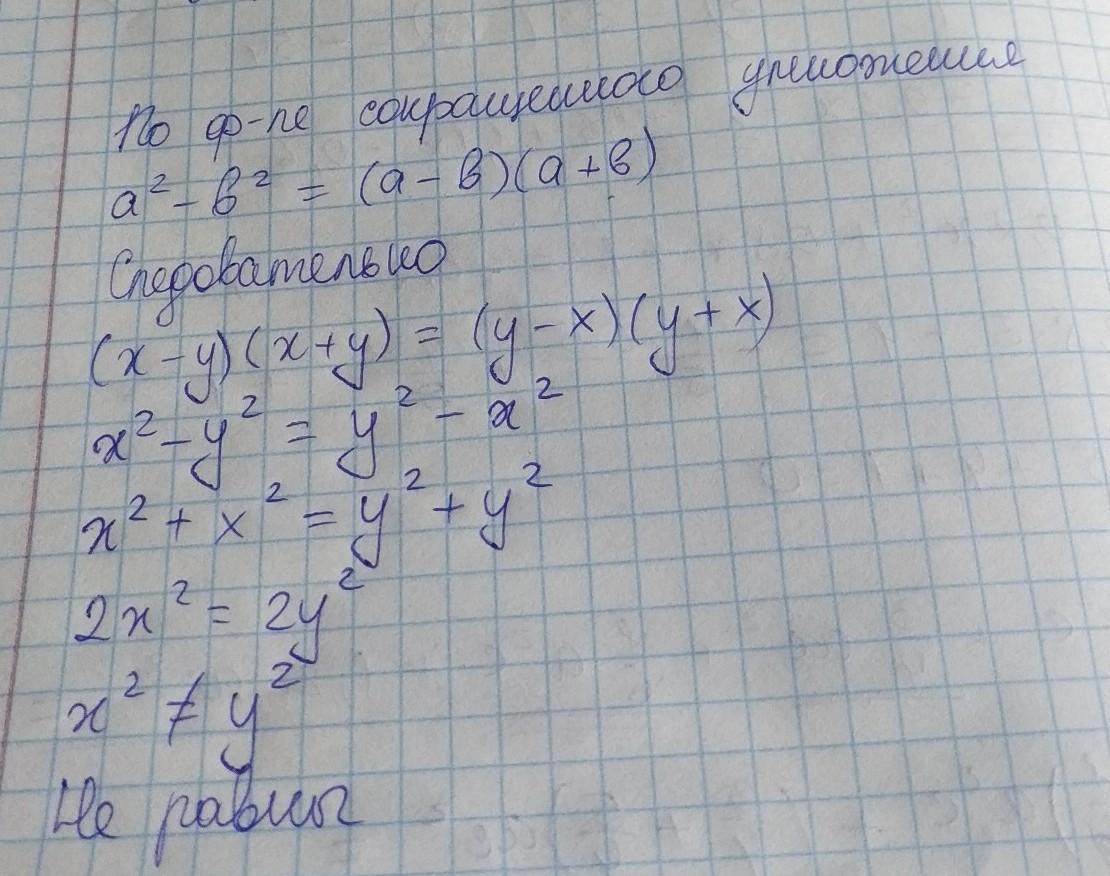 По ф-ле сокращенного умножения
a² - b² = (a - b)(a + b)
Следовательно
(x - y)(x + y) = (y - x)(y + x)
x² - y² = y² - x²
x² + x² = y² + y²
2x² = 2y²
x² ≠ y²
Не равны